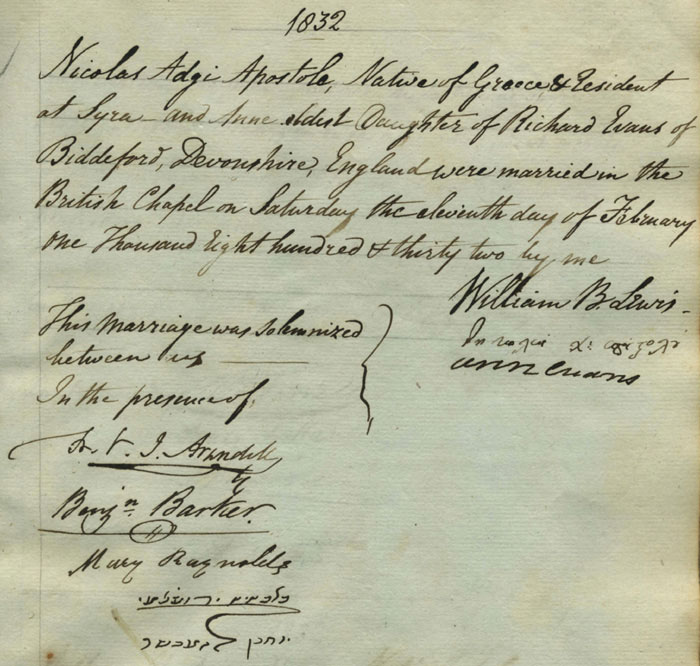 1832
Nicolas Adgi Apostole, Native of Greece & Resident
at Syra - and Anne eldest Daughter of Richard Evans of
Biddeford, Devonshire, England were married in the
British Chapel on Saturday the eleventh day of February
one Thousand Eight hundred & thirty two by me
William B. Lewis.
This Marriage was Solemnized
between us
ann evans
In the presence of,
F. V. J. Arundell
Benjn. Barker.
Mary Raynolds